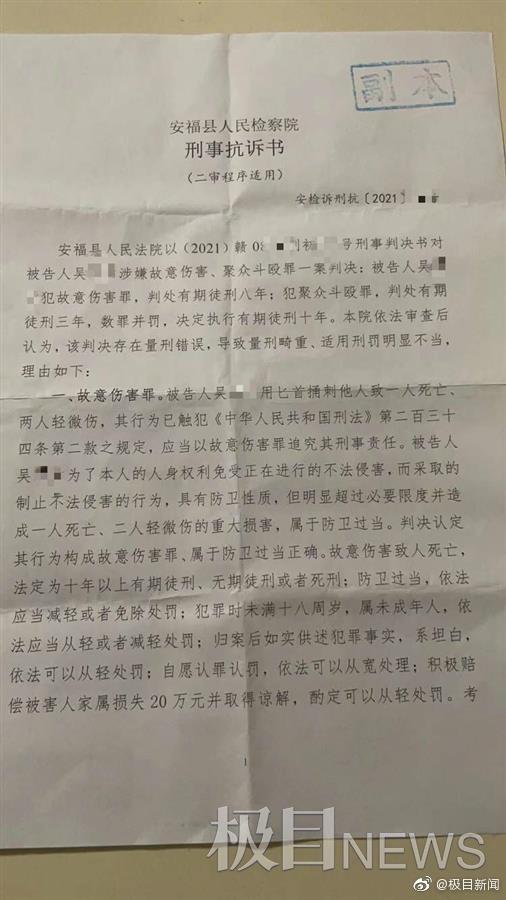 副本
安福县人民检察院
刑事抗诉书
（二审程序适用）
安检诉刑抗〔2021〕
安福县人民法院以（2021）赣08 刑初 号刑事判决书对
被告人吴 涉嫌故意伤害、聚众斗殴罪一案判决：被告人吴
犯故意伤害罪，判处有期徒刑八年；犯聚众斗殴罪，判处有期
徒刑三年，数罪并罚，决定执行有期徒刑十年。本院依法审查后
认为，该判决存在量刑错误，导致量刑畸重、适用刑罚明显不当，
理由如下：
一、故意伤害罪。被告人吴 用匕首捅刺他人致一人死亡、
两人轻微伤，其行为已触犯《中华人民共和国刑法》第二百三十
四条第二款之规定，应当以故意伤害罪追究其刑事责任。被告人
吴 为了本人的人身权利免受正在进行的不法侵害，而采取的
制止不法侵害的行为，具有防卫性质，但明显超过必要限度并造
成一人死亡、二人轻微伤的重大损害，属于防卫过当。判决认定
其行为构成故意伤害罪、属于防卫过当正确。故意伤害致人死亡，
法定为十年以上有期徒刑、无期徒刑或者死刑；防卫过当，依法
应当减轻或者免除处罚；犯罪时未满十八周岁，属未成年人，依
法应当从轻或者减轻处罚；归案后如实供述犯罪事实，系坦白，
依法可以从轻处罚；自愿认罪认罚，依法可以从宽处理；积极赔
偿被害人家属损失20万元并取得谅解，酌定可以从轻处罚。考
1
极目NEWS
@极目新闻